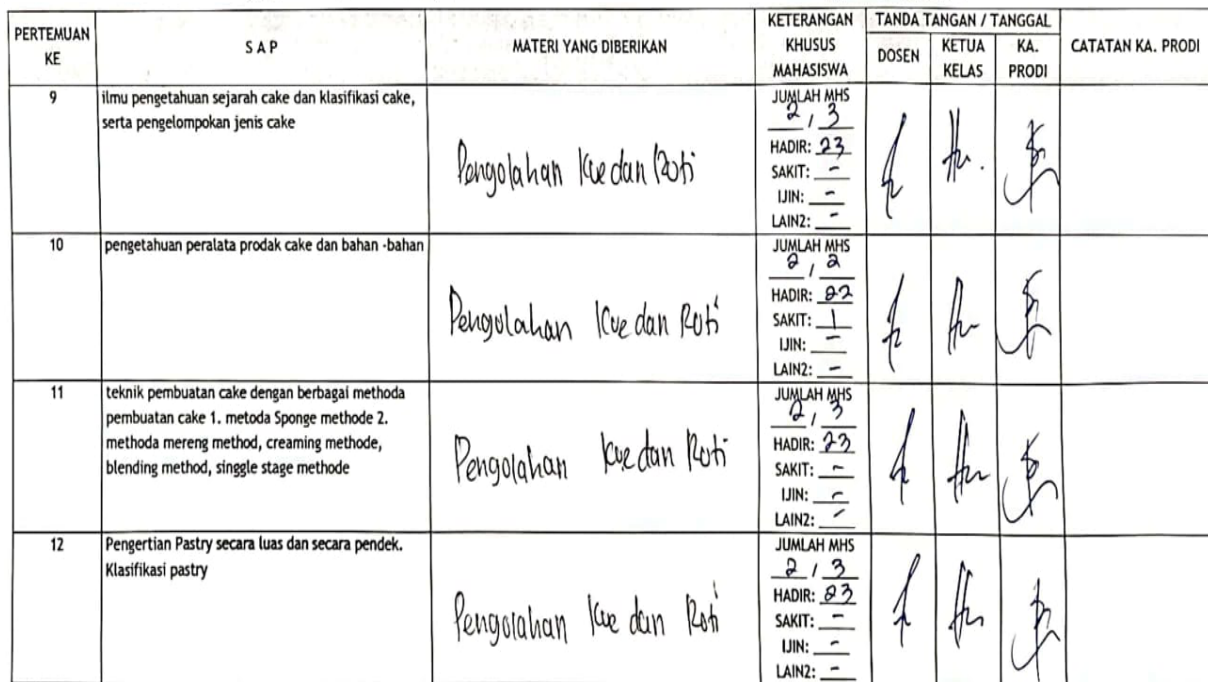 PERTEMUAN KE
S A P
MATERI YANG DIBERIKAN
KETERANGAN KHUSUS MAHASISWA
TANDA TANGAN / TANGGAL
DOSEN
KETUA KELAS
KA. PRODI
CATATAN KA. PRODI
9
ilmu pengetahuan sejarah cake dan klasifikasi cake,
serta pengelompokan jenis cake
Pengolahan Kue dan Roti
JUMLAH MHS
2 / 3
HADIR: 23
SAKIT: -
IJIN: -
LAIN2: -
10
pengetahuan peralata prodak cake dan bahan -bahan
Pengolahan Kue dan Roti
JUMLAH MHS
2 / 2
HADIR: 22
SAKIT: 1
IJIN: -
LAIN2: -
11
teknik pembuatan cake dengan berbagai methoda
pembuatan cake 1. metoda Sponge methode 2.
methoda mereng method, creaming methode,
blending method, singgle stage methode
Pengolahan Kue dan Roti
JUMLAH MHS
2 / 3
HADIR: 23
SAKIT: -
IJIN: -
LAIN2: -
12
Pengertian Pastry secara luas dan secara pendek.
Klasifikasi pastry
Pengolahan Kue dan Roti
JUMLAH MHS
2 / 3
HADIR: 23
SAKIT: -
IJIN: -
LAIN2: -